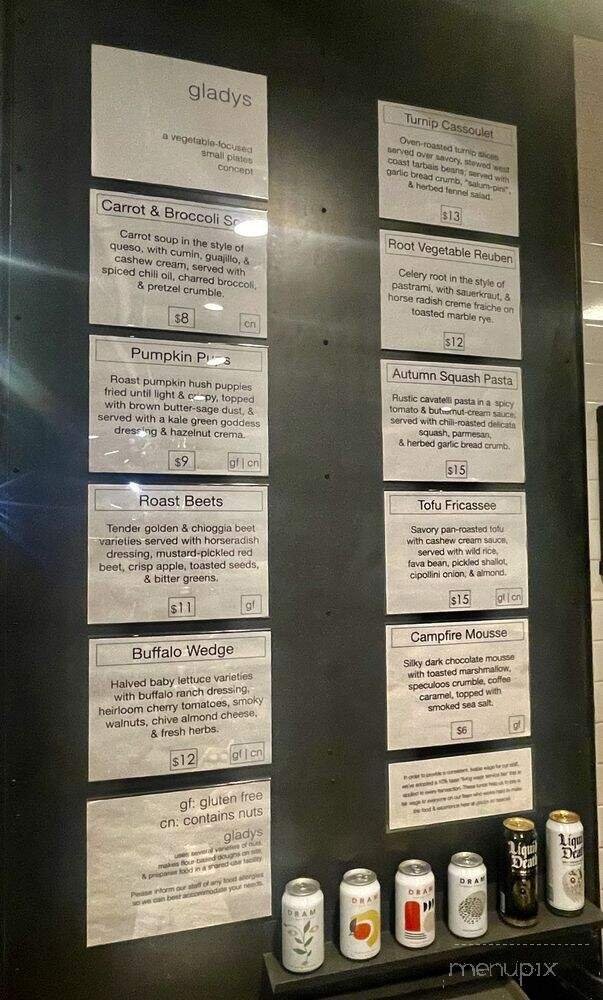 gladys
a vegetable-focused
small plates
concept
Carrot & Broccoli
Carrot soup in the style of
queso, with cumin, guajillo, &
cashew cream, served with
spiced chili oil, charred broccoli,
& pretzel crumble.
$8
cn
Pumpkin
Roast pumpkin hush puppies
fried until light & crispy, topped
with brown butter-sage dust, &
served with a kale green goddess
dressing & hazelnut crema.
$9
gf | cn
Roast Beets
Tender golden & chioggia beet
varieties served with horseradish
dressing, mustard-pickled red
beet, crisp apple, toasted seeds,
& bitter greens.
$11
gf
Buffalo Wedge
Halved baby lettuce varieties
with buffalo ranch dressing,
heirloom cherry tomatoes, smoky
walnuts, chive almond cheese,
& fresh herbs.
$12
gf | cn
gf: gluten free
cn: contains nuts
gladys
uses several varieties of nuts,
makes flour-based doughs on site,
& prepares food in a shared-use facility.
Please inform our staff of any food allergies
so we can best accommodate your needs.
Turnip Cassoulet
Oven-roasted turnip slices
served over savory, stewed west
coast tarbais beans; served with
garlic bread crumb, "salum-pini",
& herbed fennel salad.
$13
Root Vegetable Reuben
Celery root in the style of
pastrami, with sauerkraut, &
horse radish creme fraiche on
toasted marble rye.
$12
Autumn Squash Pasta
Rustic cavatelli pasta in a spicy
tomato & butternut-cream sauce,
served with chili-roasted delicata
squash, parmesan,
& herbed garlic bread crumb.
$15
Tofu Fricassee
Savory pan-roasted tofu
with cashew cream sauce,
served with wild rice,
fava bean, pickled shallot,
cipollini onion, & almond.
$15
gf | cn
Campfire Mousse
Silky dark chocolate mousse
with toasted marshmallow,
speculoos crumble, coffee
caramel, topped with
smoked sea salt.
$6
gf
In order to provide a consistent, livable wage for our staff,
we've adopted a 10% "living wage service fee" that is
applied to every transaction. These funds help us to pay a
fair wage to everyone on our team who works hard to make
the food & experience here at gladys
DRAM
DRAM
DRAM
DRAM
Liquid
Death
Liquid
Death
menupix